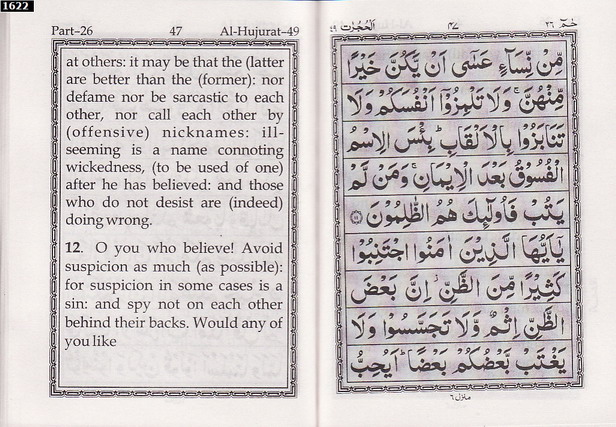 1622
Part–26 47 Al-Hujurat–49
at others: it may be that the (latter
are better than the (former): nor
defame nor be sarcastic to each
other, nor call each other by
(offensive) nicknames: ill-
seeming is a name connoting
wickedness, (to be used of one)
after he has believed: and those
who do not desist are (indeed)
doing wrong.
12. O you who believe! Avoid
suspicion as much (as possible):
for suspicion in some cases is a
sin: and spy not on each other
behind their backs. Would any of
you like
حٰمٓ ٢٦ ٤٧ اَلْحُجُرٰت ٤٩
مِّنْ نِّسَآءٍ عَسٰٓى اَنْ يَّكُنَّ خَيْرًا
مِّنْهُنَّ ۚ وَلَا تَلْمِزُوْٓا اَنْفُسَكُمْ وَلَا
تَنَابَزُوْا بِالْاَلْقَابِ ؕ بِئْسَ الِاسْمُ
الْفُسُوْقُ بَعْدَ الْاِيْمَانِ ۚ وَمَنْ لَّمْ
يَتُبْ فَاُولٰٓئِكَ هُمُ الظّٰلِمُوْنَ ﴿١١﴾
يٰٓاَيُّهَا الَّذِيْنَ اٰمَنُوا اجْتَنِبُوْا
كَثِيْرًا مِّنَ الظَّنِّ ۫ اِنَّ بَعْضَ
الظَّنِّ اِثْمٌ وَّلَا تَجَسَّسُوْا وَلَا
يَغْتَبْ بَّعْضُكُمْ بَعْضًا ؕ اَيُحِبُّ
منزل ٦